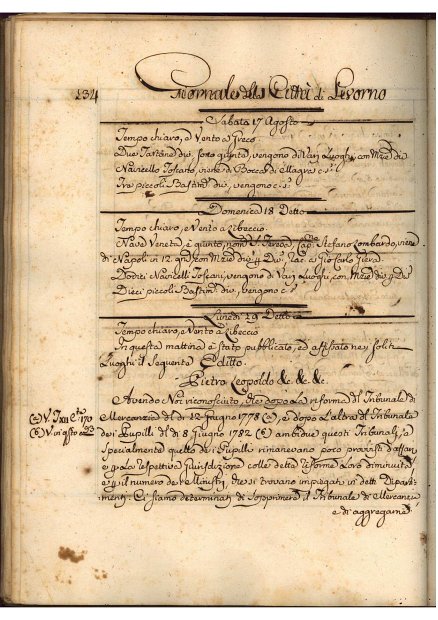 234 Giornale della Città di Livorno
Sabato 17 Agosto
Tempo chiaro, e Vento a Greco
Due Tartane div. sono giunte, vengono di Varj Luoghi, con Mzie div.
Navicello Toscano, viene di Bocca di Magra c. s.
Tre piccoli Bastim. div. vengono c. s.
Domenica 18 Detto
Tempo chiaro, e Vento a Libeccio
Nave Veneta, è giunta, nom. S. Teresa, Cap. Stefano Lombardo, viene
di Napoli in 12 g. con Mzie div. p. Dv.
Dodici Navicelli Toscani, vengono di Varj Luoghi, con Mzie div. p. Dv.
Dieci piccoli Bastim. div. vengono c. s.
Lunedì 19 Detto
Tempo chiaro, e Vento a Libeccio
In questa mattina è stato pubblicato, ed affissato nei soliti
Luoghi il seguente Editto
Pietro Leopoldo &c. &c. &c.
Avendo Noi riconosciuto, che dopo La riforma del Tribunale di
Mercanzia del dì 12 Giugno 1778 e dopo L'altra del Tribunale
dei Pupilli del dì 8 Giugno 1782 ambidue questi Tribunali, e
specialmente quello dei Pupilli rimanevano poco provvisti d'affari
p. La respettiva Giurisdizione colle dette riforme Loro diminuita
e p. il numero de Ministri, che si trovano impiegati in detti Diparti-
menti. Ci siamo determinati di sopprimere il Tribunale di Mercanzia
e di aggregarne